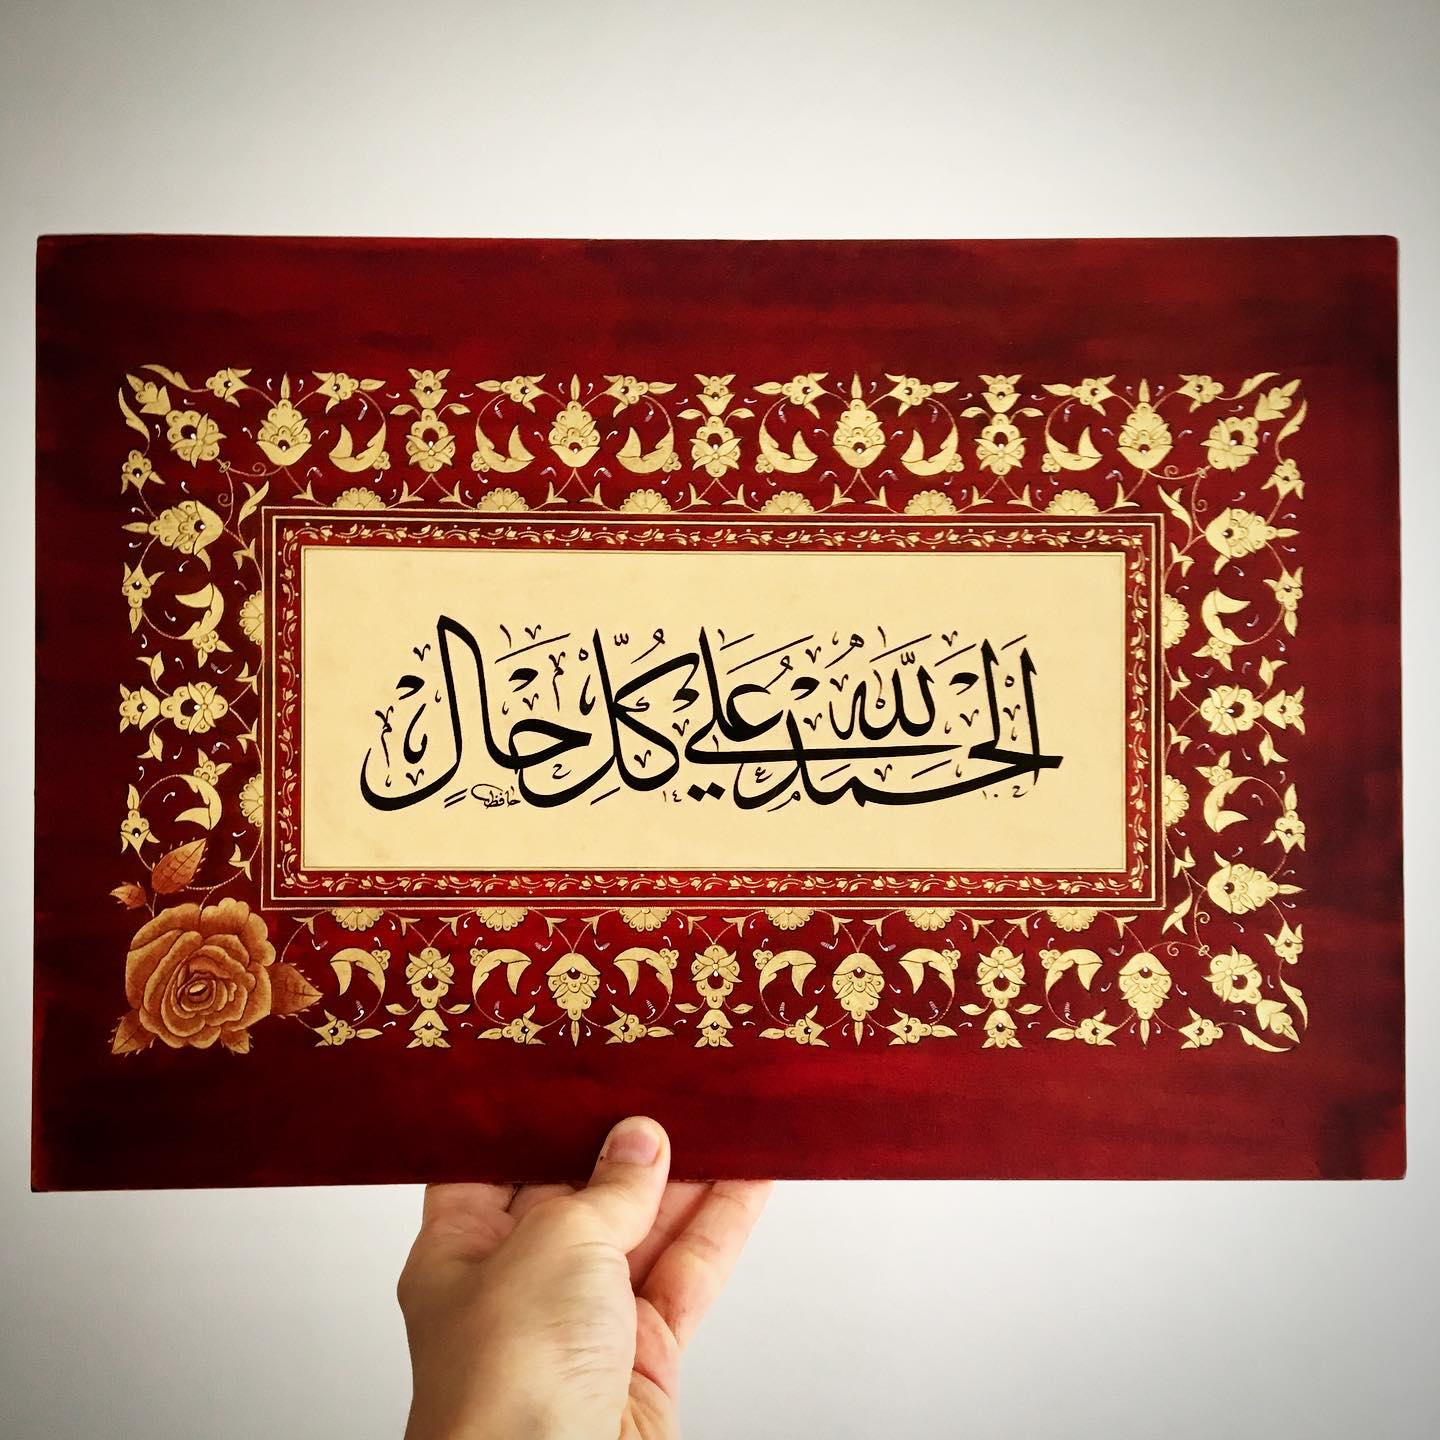 الْحَمْدُ لِلّٰهِ عَلَى كُلِّ حَالٍ
حافظ